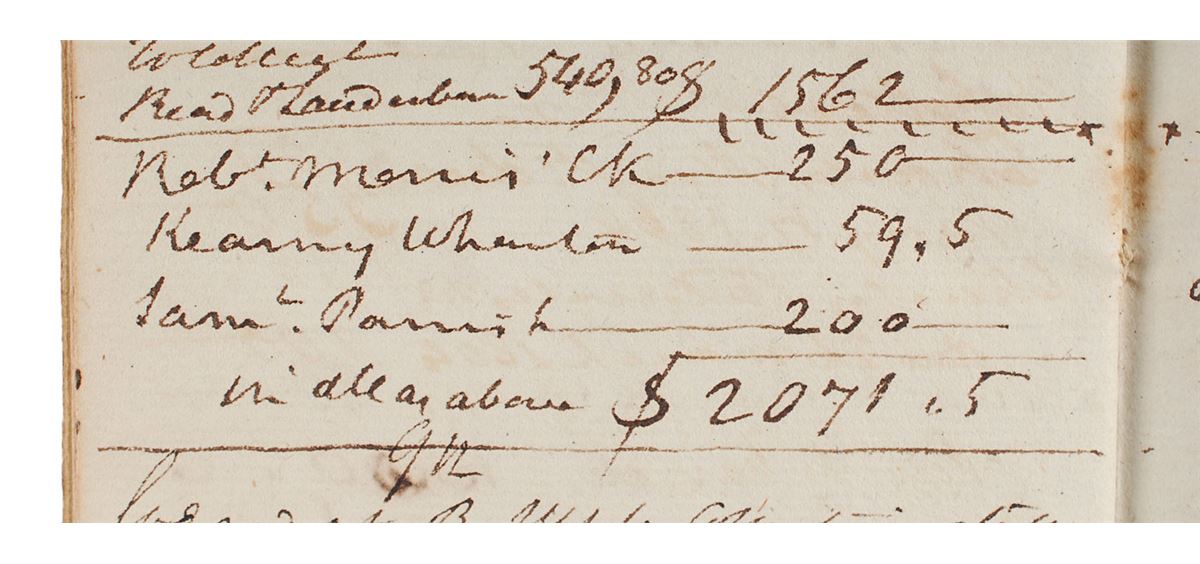 to collect
Read & Lauderbun 540,808 1562
Robt. Morris' Ck 250
Kearny Wharton 59.5
Saml. Parrish 200
in all as above $ 2071.5